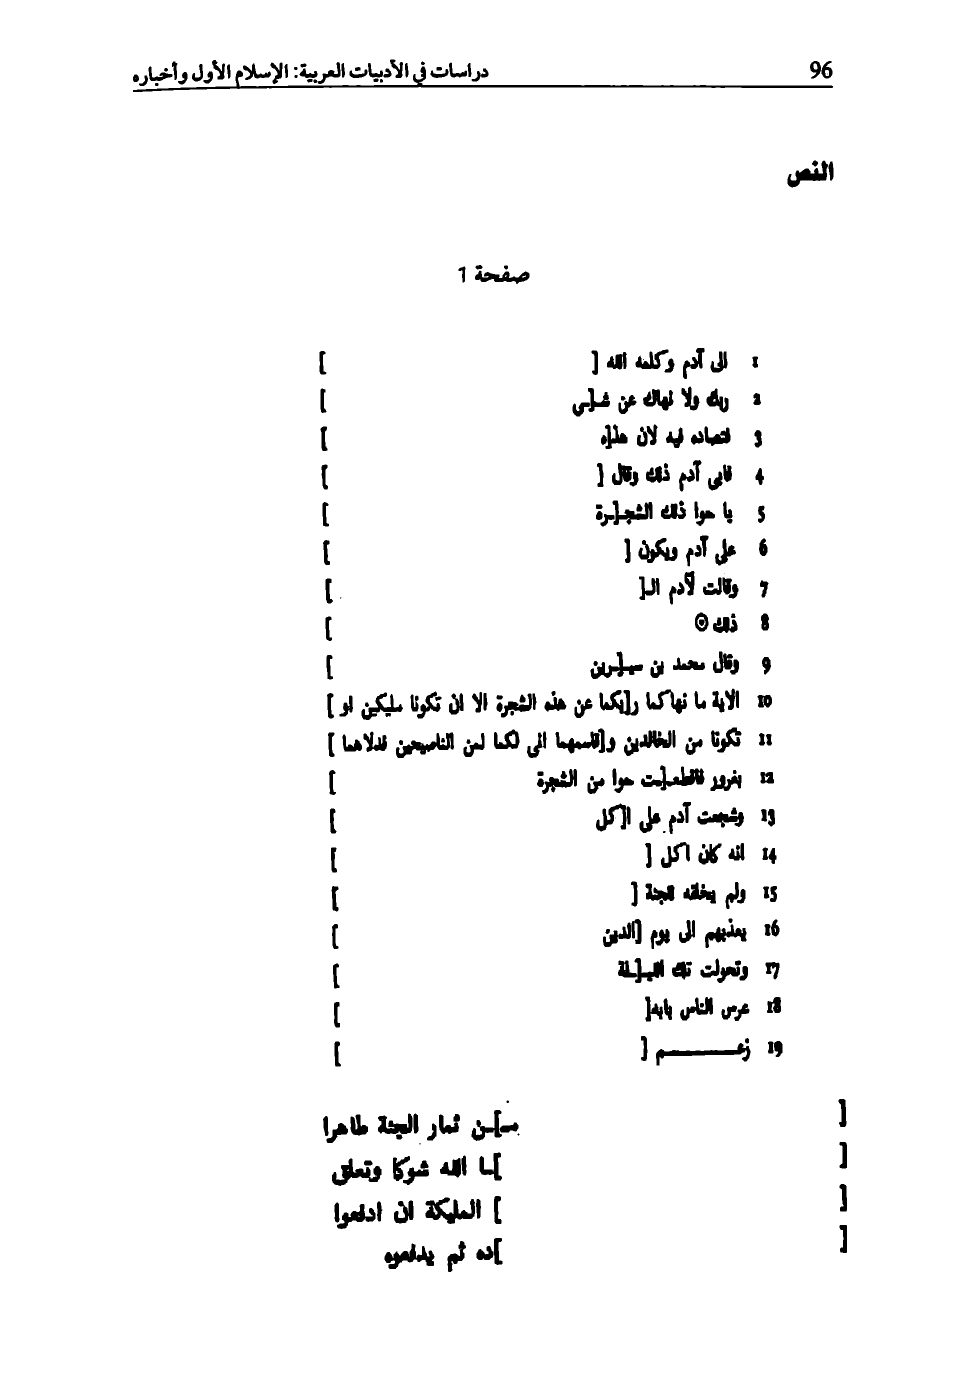 96 دراسات في الأدبيات العربية: الإسلام الأول وأخباره
النص
صفحة 1
1 الى آدم وكلمه الله [ ]
2 ربك ولا نهاك عن شـ[ـى ]
3 فتصاده فيه لان هذ[ه ]
4 فابى آدم ذلك وقال [ ]
5 يا حوا ذلك الشجـ[ـرة ]
6 على آدم ويكون [ ]
7 وقالت لآدم الـ[ ]
8 ذلك ⊙ ]
9 وقال محمد بن سيـ[ـرين ]
10 الاية ما نهاكما ر[بكما عن هذه الشجرة الا ان تكونا مليكين او ]
11 تكونا من الخالدين و[قاسمهما انى لكما لمن الناصحين فدلاهما ]
12 بغرور فاقطعـ[ـت حوا من الشجرة ]
13 وشجعت آدم على ا[لاكل ]
14 انه كان اكل [ ]
15 ولم يخلقه للجنة [ ]
16 يعذبهم الى يوم [الدين ]
17 وتحولت تلك الليـ[ـلة ]
18 عرس الناس بابه[ ]
19 زعـــــــم [ ]
[ مـ]ـن ثمار الجنة طاهرا
[ ]ـا الله شوكا وتعلق
[ ] المليكة ان ادفعوا
[ ]ده ثم يدفعوه